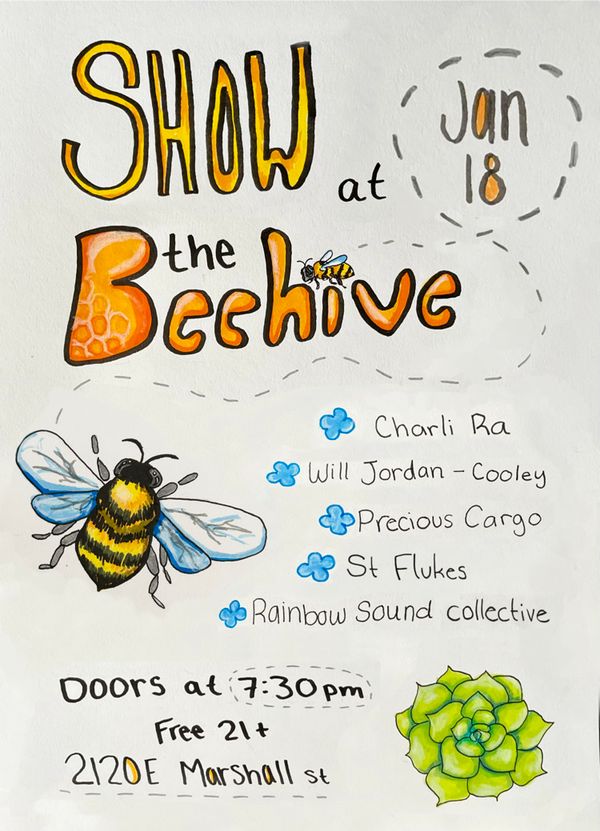 SHOW
at
Jan
18
the
Beehive
Charli Ra
Will Jordan - Cooley
Precious Cargo
St Flukes
Rainbow Sound collective
Doors at 7:30pm
Free 21+
2120E Marshall st